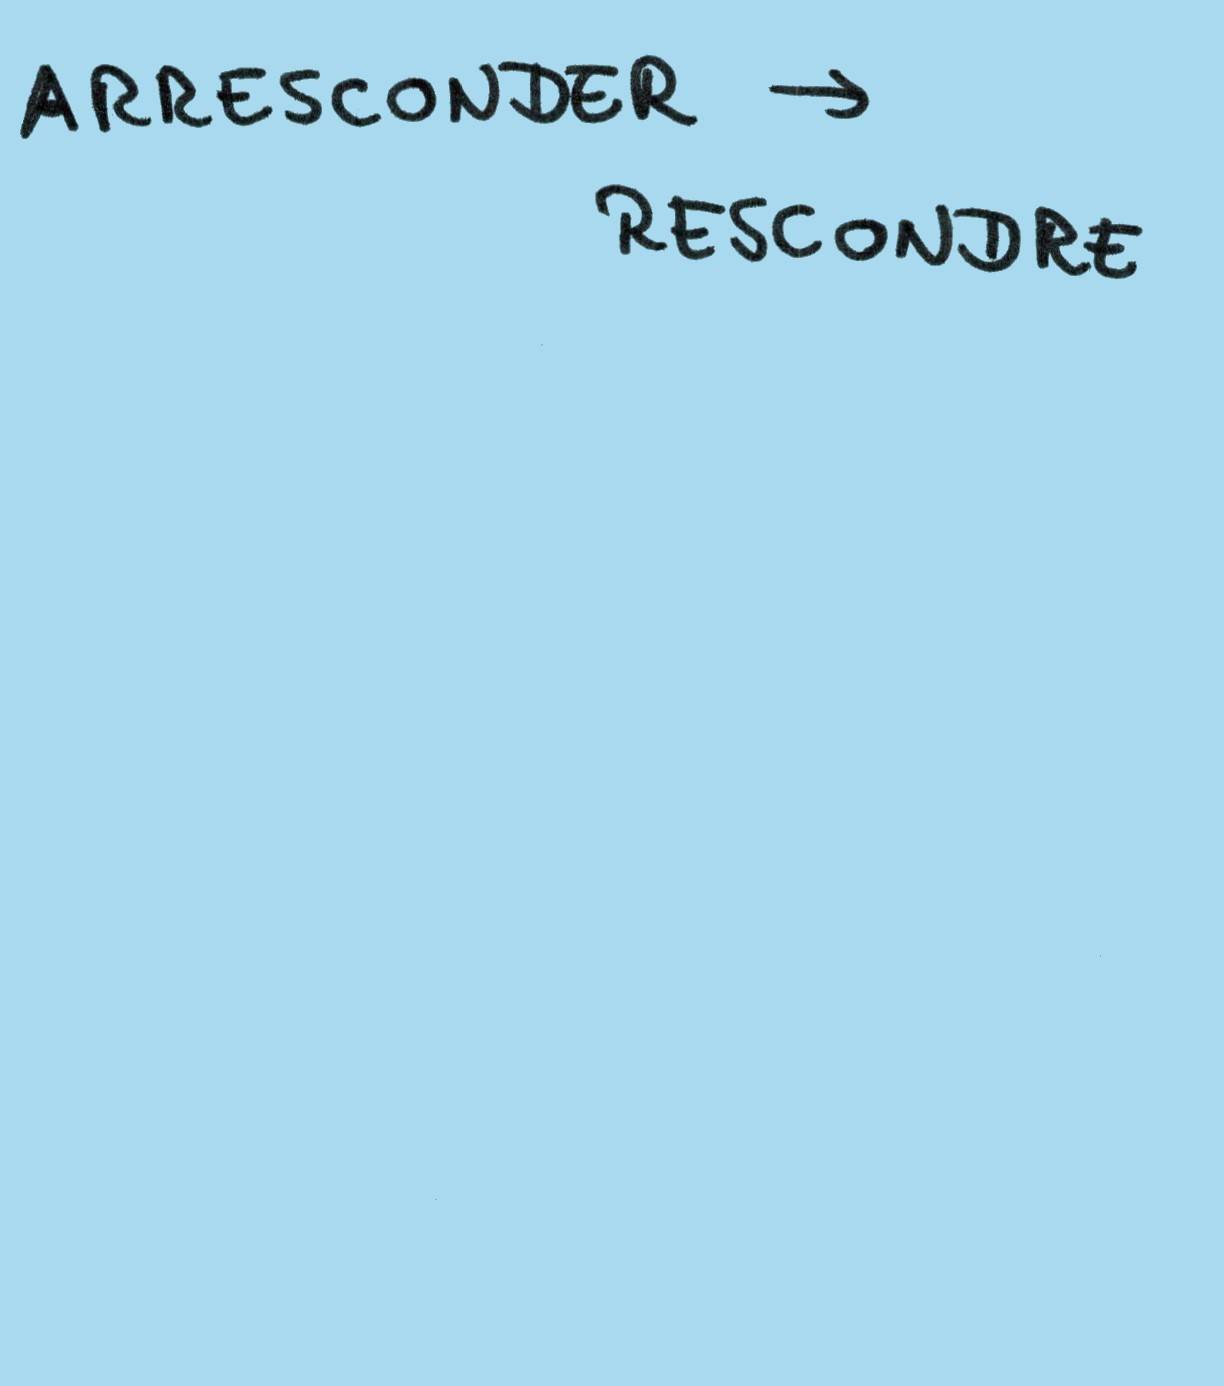 ARRESCONDER →
RESCONDRE